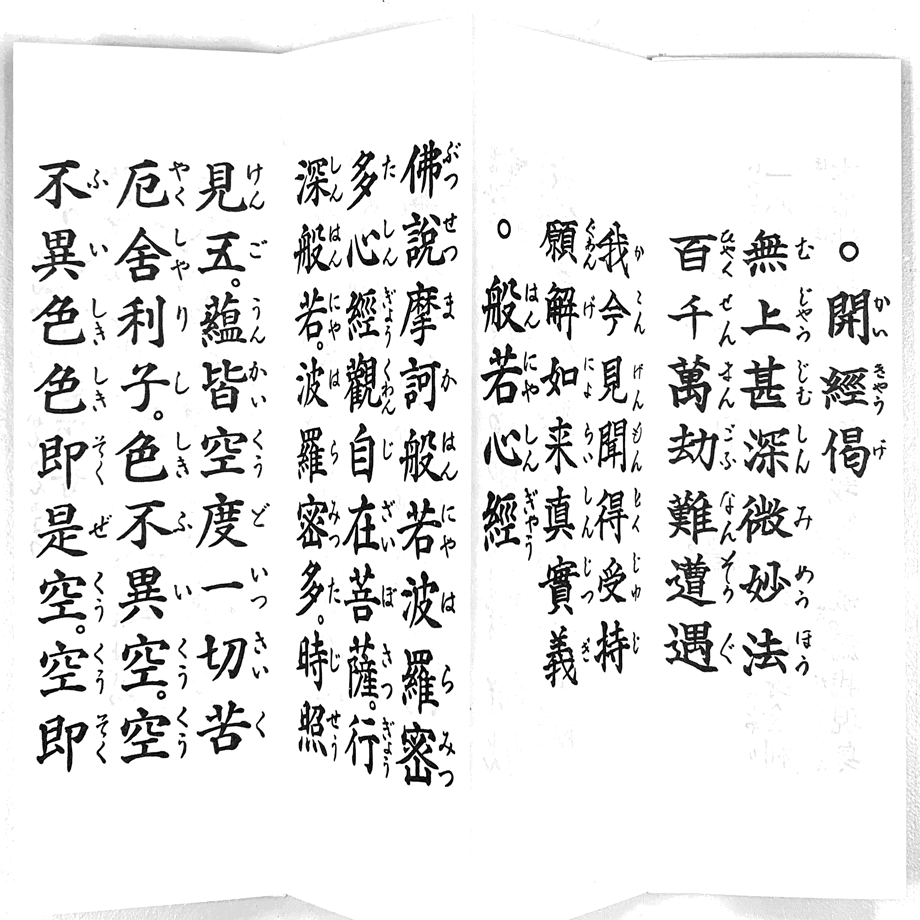 ○開經偈
無上甚深微妙法
百千萬劫難遭遇
我今見聞得受持
願解如来真實義
○般若心經
佛說摩訶般若波羅密
多心經觀自在菩薩。行
深般若。波羅密多。時照
見五。蘊皆空度一切苦
厄舍利子。色不異空。空
不異色色即是空。空即